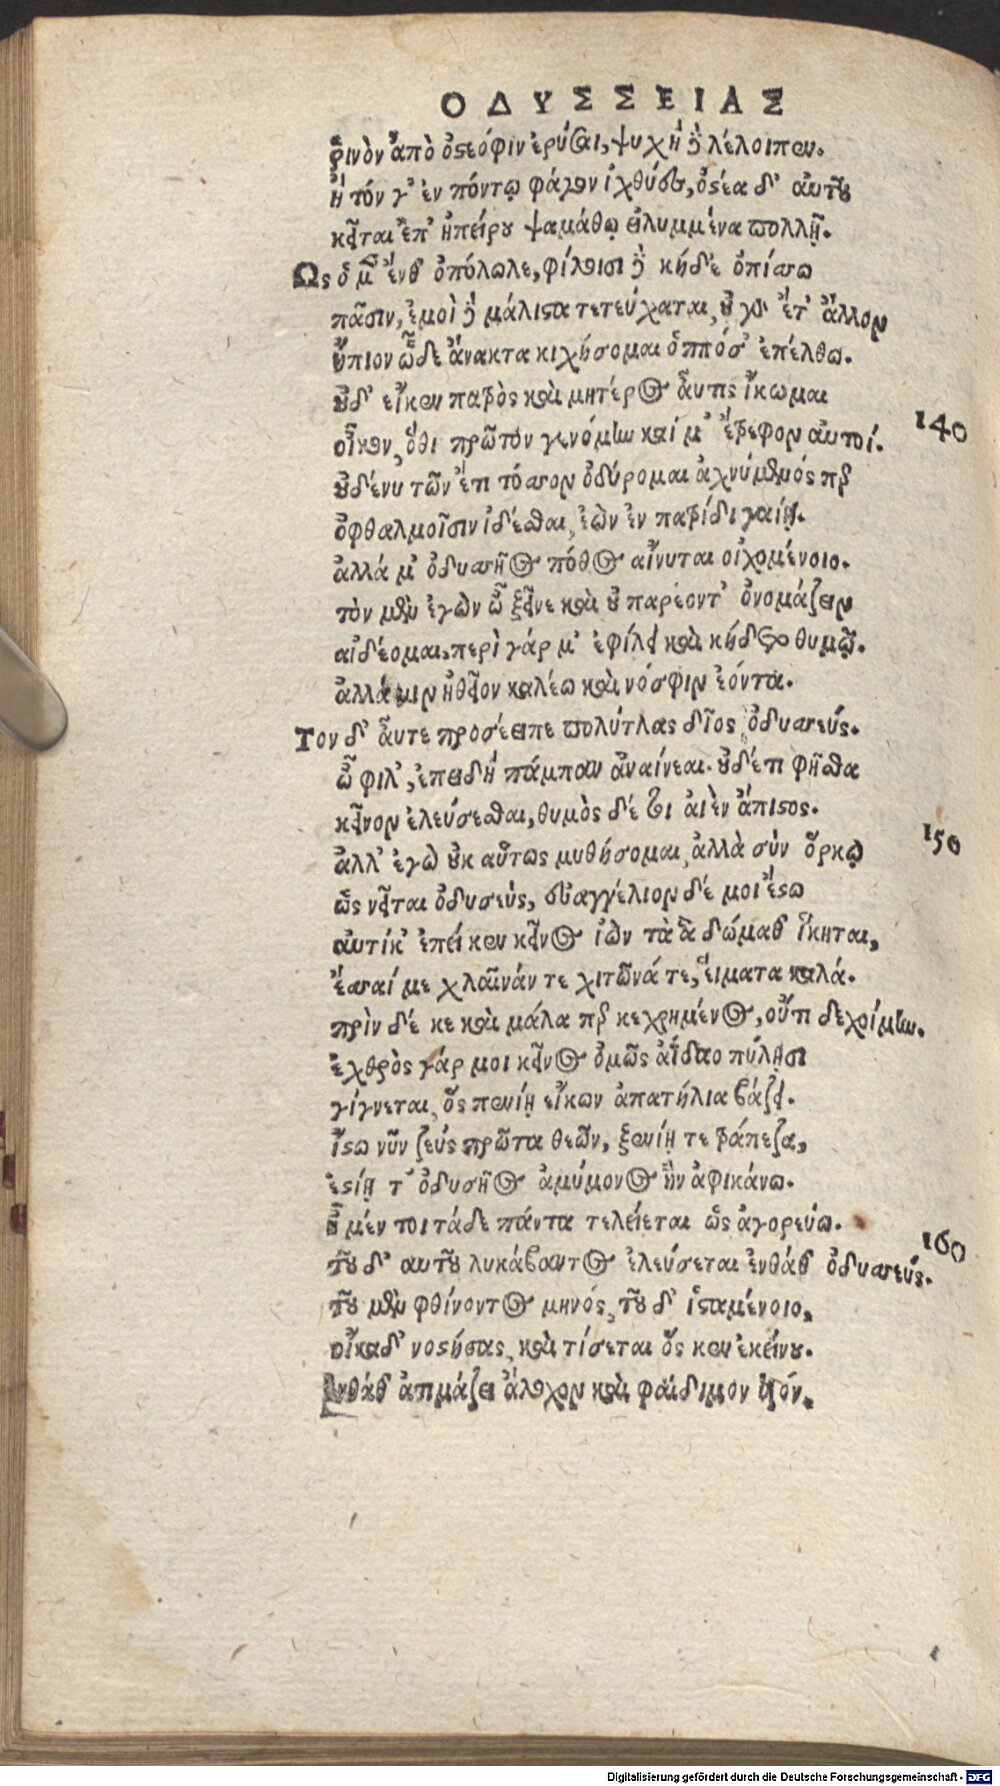 ΟΔΥΣΣΕΙΑΣ
ῥινὸν ἀπὸ ὀστεόφιν ἐρύσαι, ψυχὴ δὲ λέλοιπεν.
ἢ τόν γ' ἐν πόντῳ φάγον ἰχθύες, ὀστέα δ' αὐτοῦ
κεῖται ἐπ' ἠπείρου ψαμάθῳ εἰλυμμένα πολλῇ.
Ὣς ὁ μὲν ἔνθ' ἀπόλωλε, φίλοισι δὲ κήδε' ὀπίσσω
πᾶσιν, ἐμοὶ δὲ μάλιστα τετεύχαται, οὐ γὰρ ἔτ' ἄλλον
ἤπιον ὧδε ἄνακτα κιχήσομαι ὁππόσ' ἐπέλθω.
οὐδ' εἴκεν πατρὸς καὶ μητέρος αὖτις ἵκωμαι
οἶκον, ὅθι πρῶτον γενόμην καί μ' ἔτρεφον αὐτοί.
140
οὐδένυ τῶν ἔτι τόσσον ὀδύρομαι ἀχνύμενός περ
ὀφθαλμοῖσιν ἰδέσθαι, ἐὼν ἐν πατρίδι γαίῃ.
ἀλλά μ' ὀδυσσῆος πόθος αἴνυται οἰχομένοιο.
τὸν μὲν ἐγὼν ὦ ξεῖνε καὶ οὐ παρέοντ' ὀνομάζειν
αἰδέομαι, περὶ γάρ μ' ἐφίλει καὶ κήδετο θυμῷ.
ἀλλά μιν ἠθεῖον καλέω καὶ νόσφιν ἐόντα.
Τον δ' αὖτε προσέειπε πολύτλας δῖος ὀδυσσεύς.
ὦ φίλ', ἐπειδὴ πάμπαν ἀναίνεαι. οὐδέτι φῇσθα
κεῖνον ἐλεύσεσθαι, θυμὸς δέ τοι αἰὲν ἄπιστος.
ἀλλ' ἐγὼ οὐκ αὔτως μυθήσομαι, ἀλλὰ σὺν ὅρκῳ
150
ὡς νεῖται ὀδυσεύς, εὐαγγέλιον δέ μοι ἔστω
αὐτίκ' ἐπεί κεν κεῖνος ἰὼν τὰ ἃ δώμαθ' ἵκηται,
ἕσσαί με χλαῖνάν τε χιτῶνά τε, εἵματα καλά.
πρὶν δέ κε καὶ μάλα περ κεχρημένος, οὔτι δεχοίμην.
ἐχθρὸς γάρ μοι κεῖνος ὁμῶς ἀΐδαο πύλῃσι
γίγνεται, ὃς πενίῃ εἴκων ἀπατήλια βάζει.
ἴστω νῦν ζεὺς πρῶτα θεῶν, ξενίη τε τράπεζα,
ἑστίη τ' ὀδυσῆος ἀμύμονος ἣν ἀφικάνω.
ἦ μέν τοι τάδε πάντα τελείεται ὡς ἀγορεύω.
τοῦ δ' αὐτοῦ λυκάβαντος ἐλεύσεται ἐνθάδ' ὀδυσσεύς.
160
τοῦ μὲν φθίνοντος μηνός, τοῦ δ' ἱσταμένοιο,
οἴκαδ' νοστήσας, καὶ τίσεται ὅς κεν ἐκείνου.
ἐνθάδ' ἀτιμάζει ἄλοχον καὶ φαίδιμον υἱόν.
Digitalisierung gefördert durch die Deutsche Forschungsgemeinschaft - DFG